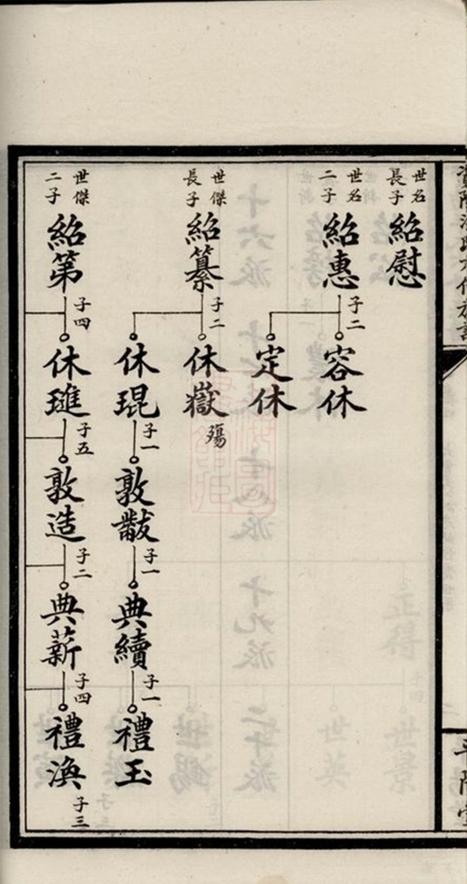 世名
長子
紹慰
世名
二子
紹惠
子二
容休
定休
世傑
長子
紹纂
子二
休嶽
殤
休琨
子一
敦黻
子一
典續
子一
禮玉
世傑
二子
紹第
子四
休璡
子五
敦造
子二
典薪
子四
禮渙
子三